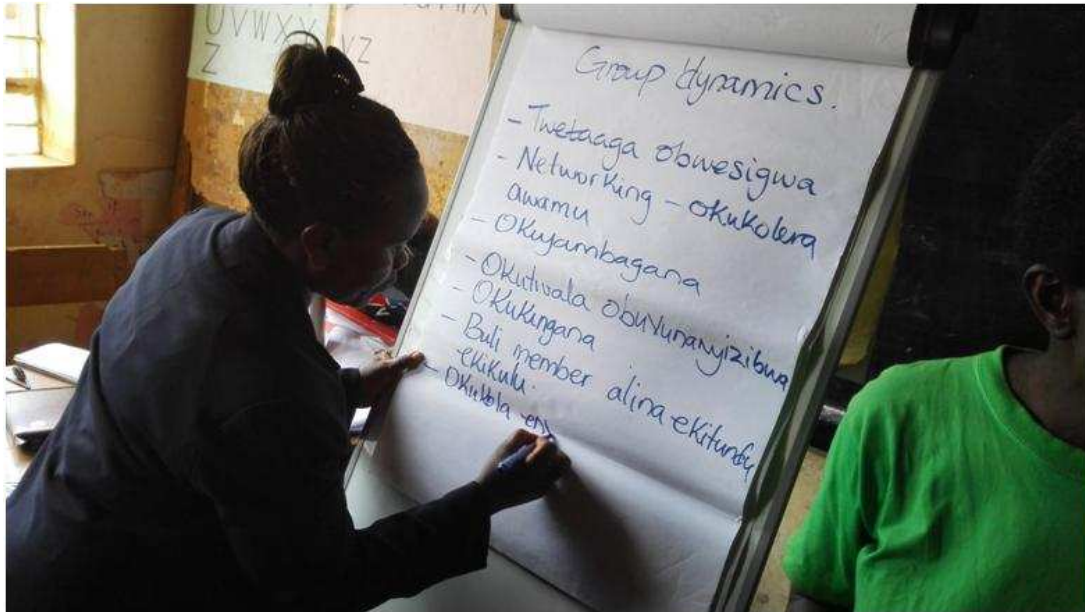 UVWXY
Z
YZ
Group dynamics.
- Twetaaga obwesigwa
- Networking - okukolera
awamu
- Okuyambagana
- Okutwala obuvunanyizibwa
- Okukkingana
- Buli member alina ekitundu
ekikulu.
- Okukola en